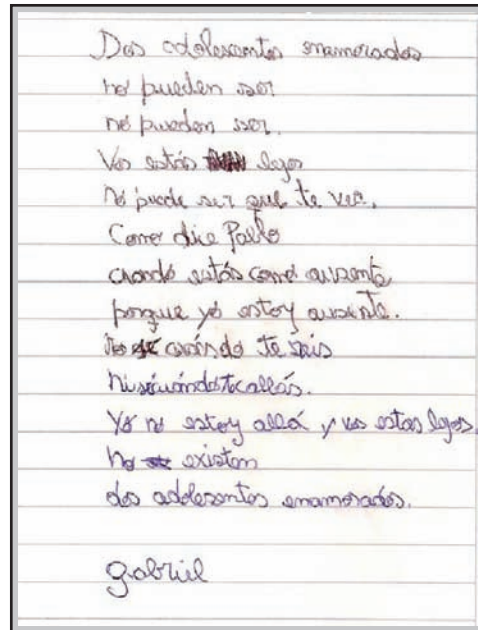 Dos adolescentes enamorados
no pueden ser
no pueden ser.
Vos estás lejos
No puede ser que te vea.
Como dice Pablo
cuando estás como ausente
porque yo estoy ausente.
No sé cuándo te reís
Ni sé cuándo te callás.
Yo no estoy allá y vos estas lejos.
No existen
dos adolesentes enamorados.
gabriel